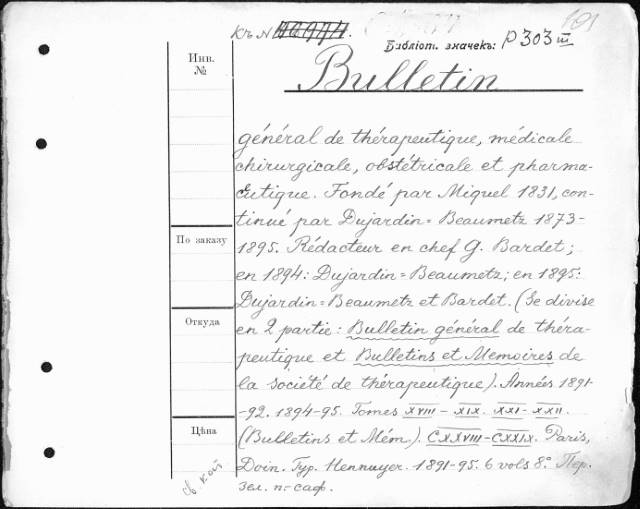 101
Къ N 46974.
Библіот. значекъ: P303 III
Bulletin
Инв.
№
général de thérapeutique, médicale
chirurgicale, obstétricale et pharma-
ceutique. Fondé par Miquel 1831, con-
tinué par Dujardin=Beaumetz 1873-
По заказу
1895. Rédacteur en chef G. Bardet;
en 1894: Dujardin=Beaumetz; en 1895:
Dujardin=Beaumetz et Bardet. (Se divise
Откуда
en 2 partie: Bulletin général de théra-
peutique et Bulletins et Memoires de
la société de thérapeutique). Années 1891-
-92. 1894-95. Tomes XVIII-XIX. XXI-XXII.
Цѣна
(Bulletins et Mém). CXXVIII-CXXIX. Paris,
Doin. Typ. Hennuyer. 1891-95. 6 vols 8°. Пер.
зел. п.-саф.